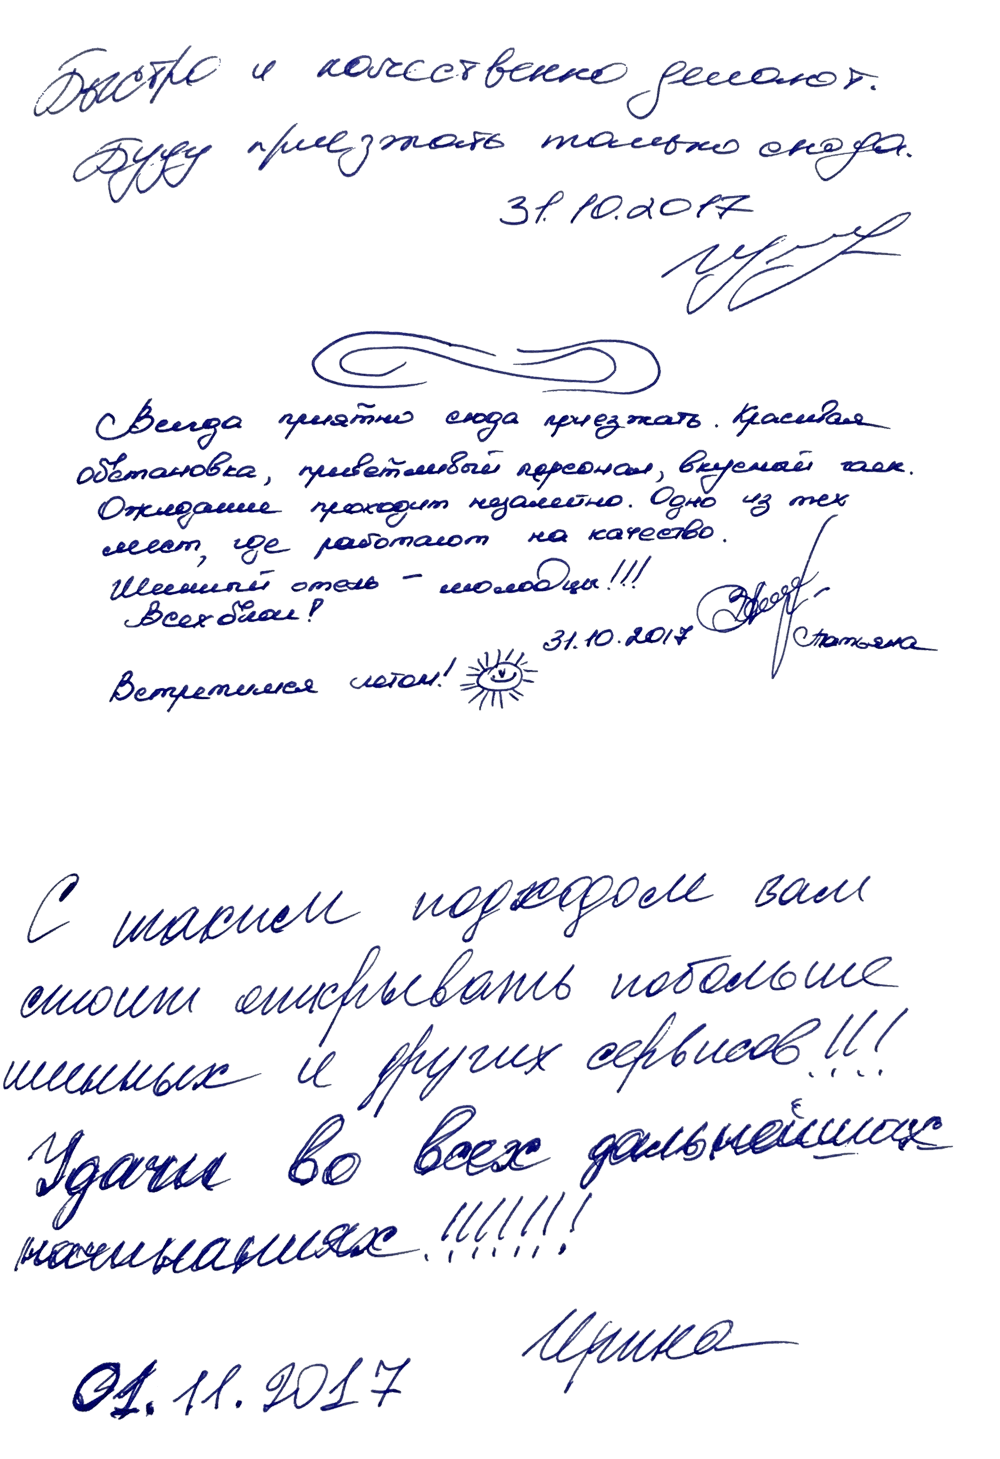 Быстро и качественно делают.
Буду приезжать только сюда.
31.10.2017
Всегда приятно сюда приезжать. Красивая
обстановка, приветливый персонал, вкусный чаек.
Ожидание проходит незаметно. Одно из тех
мест, где работают на качество.
Шинный отель – молодцы!!!
Всех благ!
31.10.2017
Татьяна
Встретимся летом!
С таким подходом вам
стоит открывать побольше
шинных и других сервисов!!!
Удачи во всех дальнейших
начинаниях!!!!!!!
Ирина
01.11.2017